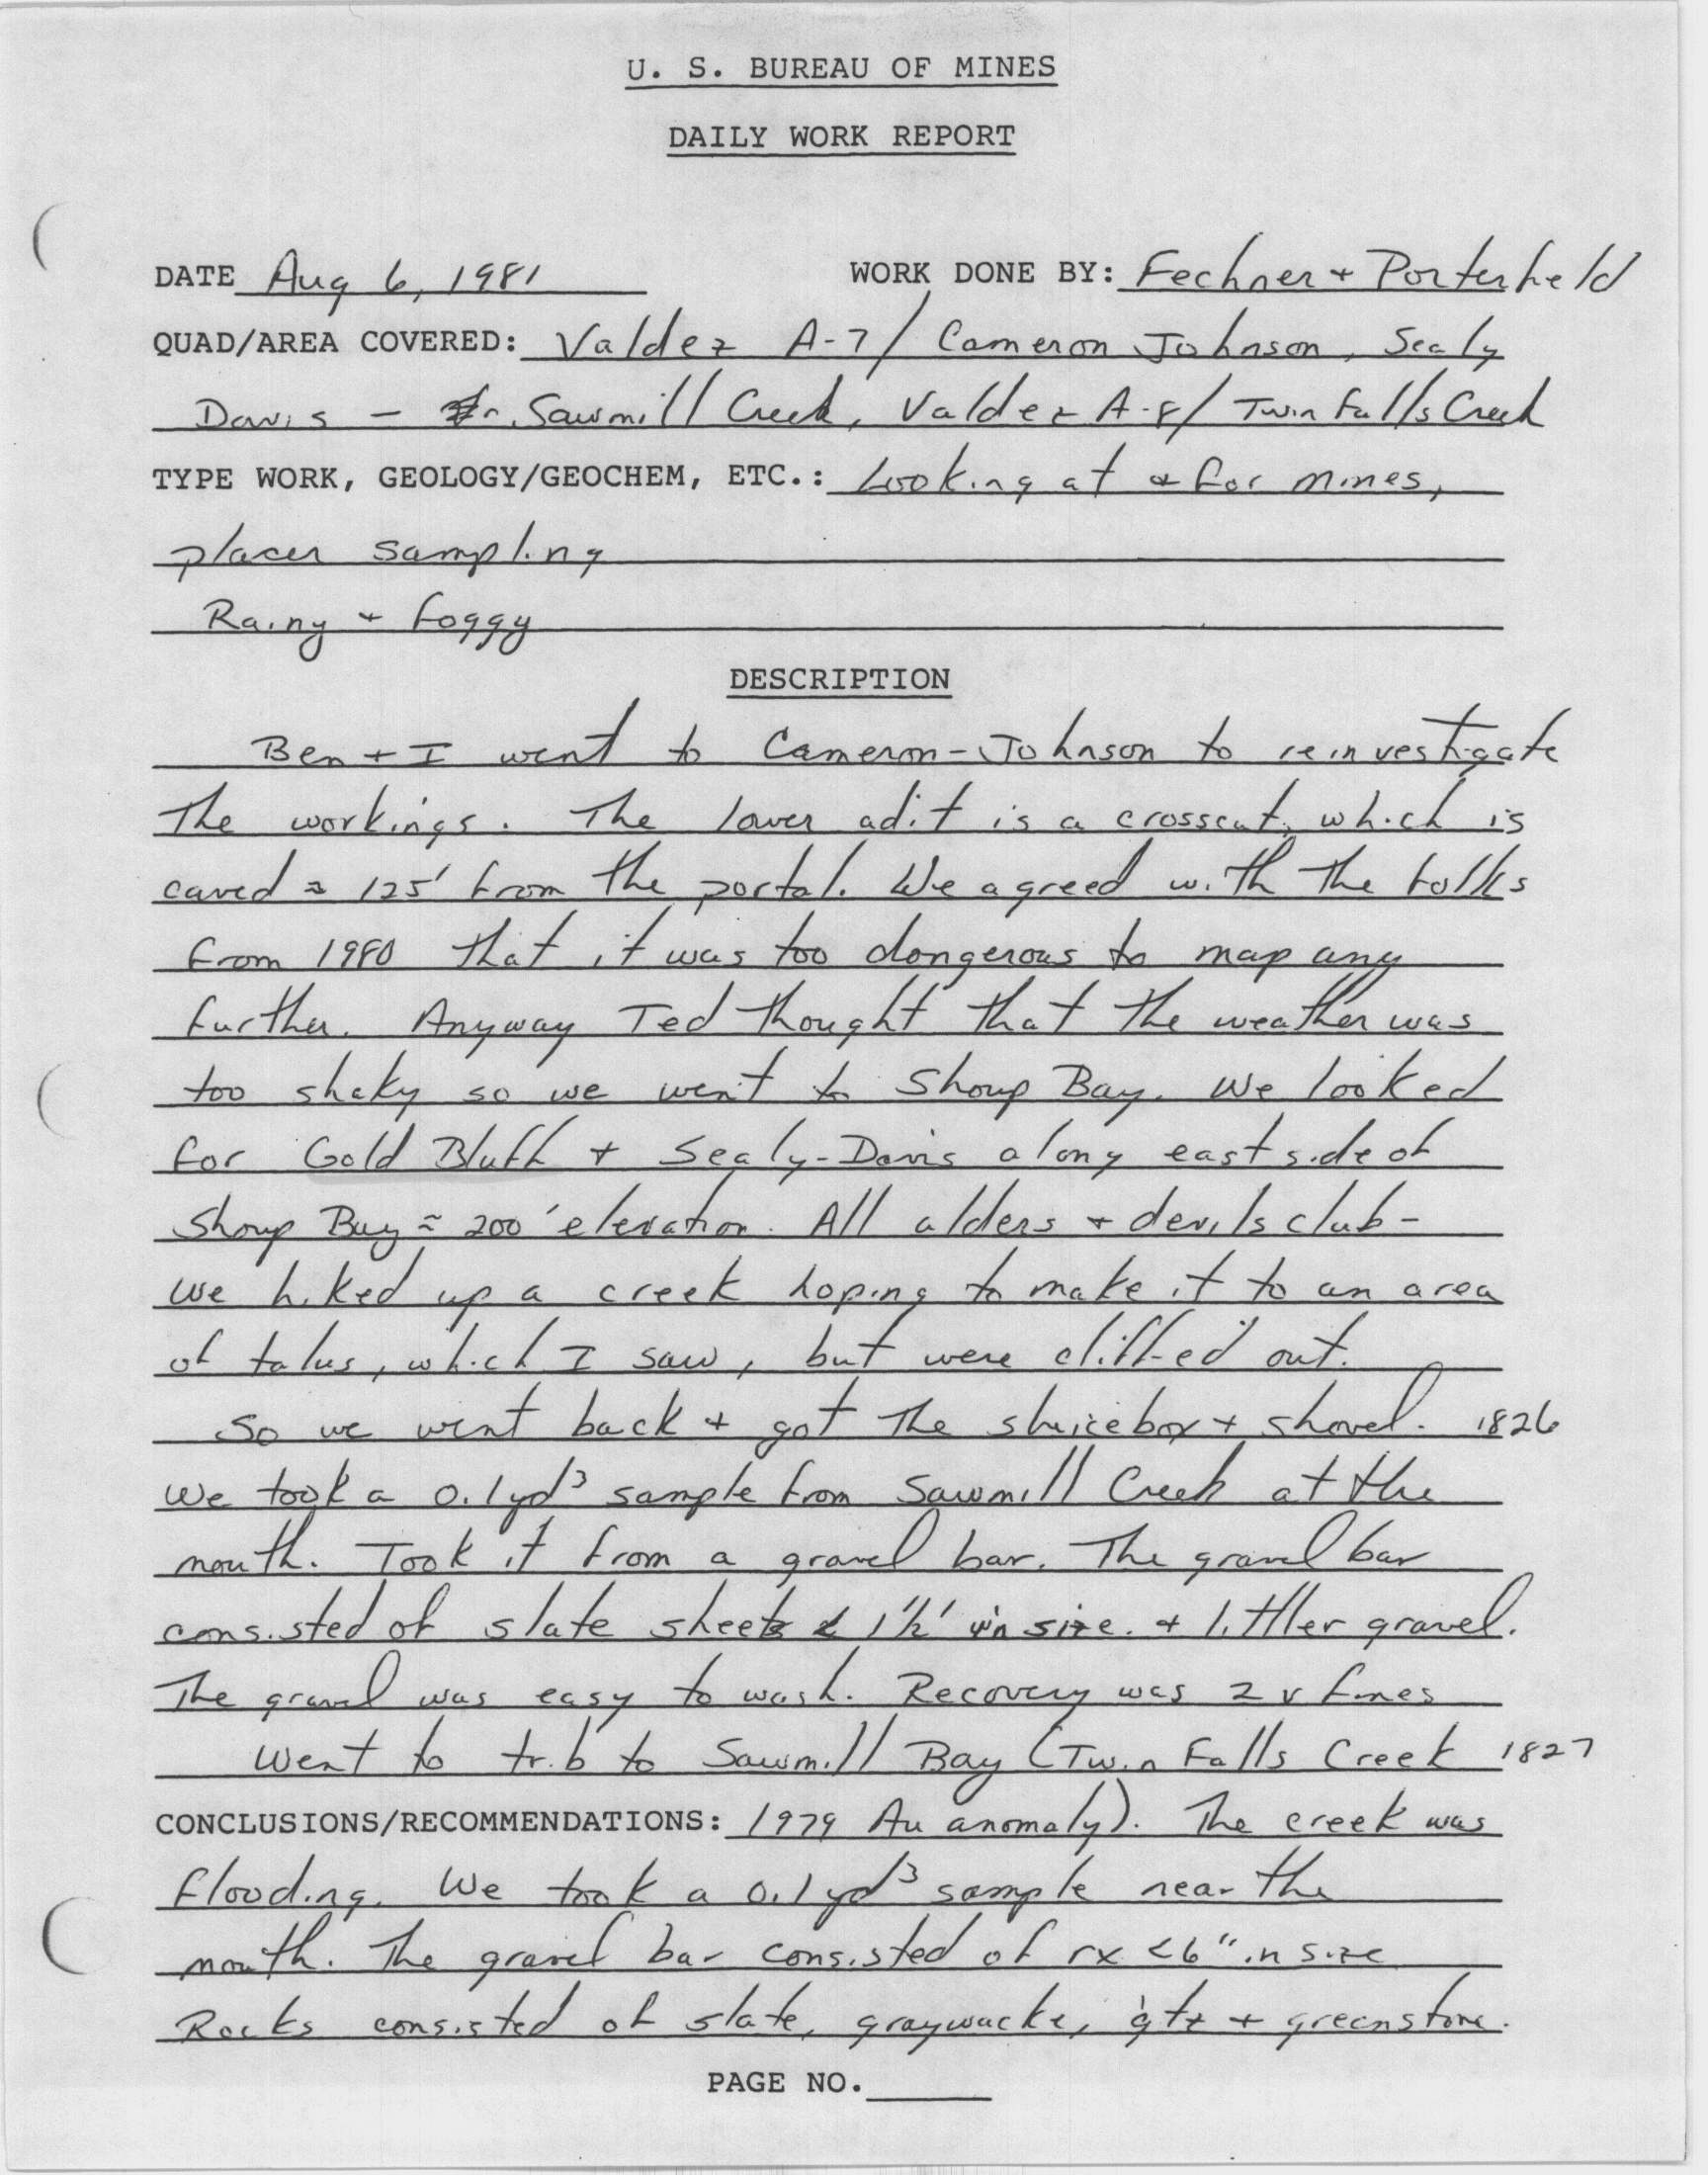 U. S. BUREAU OF MINES
DAILY WORK REPORT
DATE Aug 6, 1981 WORK DONE BY: Fechner + Porterfield
QUAD/AREA COVERED: Valdez A-7/ Cameron Johnson, Sealy
Davis - Sawmill Creek, Valdez A-8/ Twin Falls Creek
TYPE WORK, GEOLOGY/GEOCHEM, ETC.: Looking at + for mines,
placer sampling
Rainy + foggy
DESCRIPTION
Ben + I went to Cameron-Johnson to reinvestigate
the workings. The lower adit is a crosscut, which is
caved ≈ 125' from the portal. We agreed with the folks
from 1980 that it was too dangerous to map any
further. Anyway Ted thought that the weather was
too shaky so we went to Shoup Bay. We looked
for Gold Bluff + Sealy-Davis along east side of
Shoup Bay ≈ 200' elevation. All alders + devils club -
we hiked up a creek hoping to make it to an area
of talus, which I saw, but were cliffed out.
So we went back + got the sluicebox + shovel. 1826
We took a 0.1 yd³ sample from Sawmill Creek at the
mouth. Took it from a gravel bar. The gravel bar
consisted of slate sheets < 1½' in size. + littler gravel.
The gravel was easy to wash. Recovery was 2 v fines
Went to trib to Sawmill Bay (Twin Falls Creek 1827
CONCLUSIONS/RECOMMENDATIONS: 1979 Au anomaly). The creek was
flooding. We took a 0.1 yd³ sample near the
mouth. The gravel bar consisted of rx <6" in size
Rocks consisted of slate, graywacke, qtz + greenstone.
PAGE NO.